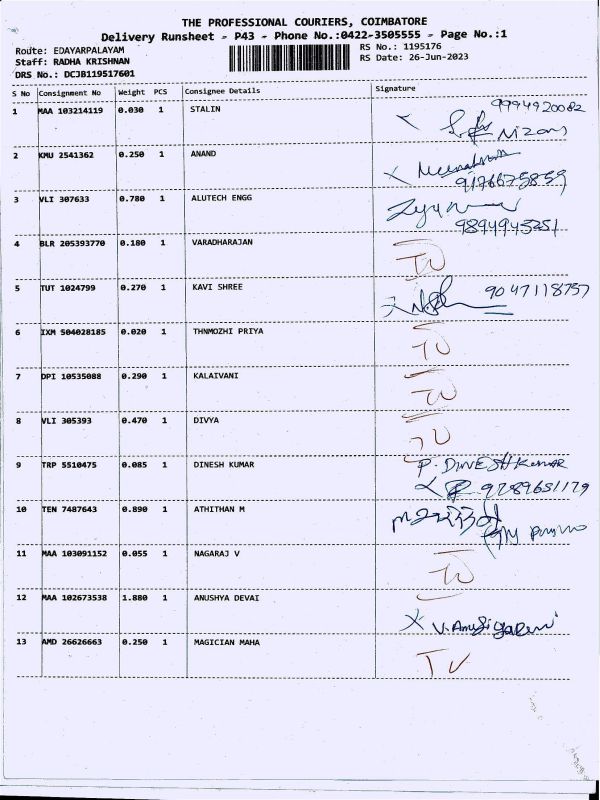 THE PROFESSIONAL COURIERS, COIMBATORE
Delivery Runsheet - P43 - Phone No.:0422-3505555 - Page No.:1
Route: EDAYARPALAYAM
Staff: RADHA KRISHNAN
DRS No.: DCJB119517601
RS No.: 1195176
RS Date: 26-Jun-2023
S No Consignment No Weight PCS Consignee Details Signature
1 MAA 103214119 0.030 1 STALIN 9994920082
2 KMU 2541362 0.250 1 ANAND
9176675859
3 VLI 307633 0.780 1 ALUTECH ENGG
9894945251
4 BLR 205393770 0.180 1 VARADHARAJAN
5 TUT 1024799 0.270 1 KAVI SHREE 9047118757
6 IXM 504028185 0.020 1 THNMOZHI PRIYA TU
7 DPI 10535088 0.290 1 KALAIVANI
8 VLI 305393 0.470 1 DIVYA
9 TRP 5510475 0.085 1 DINESH KUMAR P. DINESH Kumar
9789651179
10 TEN 7487643 0.890 1 ATHITHAN M
11 MAA 103091152 0.055 1 NAGARAJ V
12 MAA 102673538 1.880 1 ANUSHYA DEVAI
13 AMD 26626663 0.250 1 MAGICIAN MAHA TU